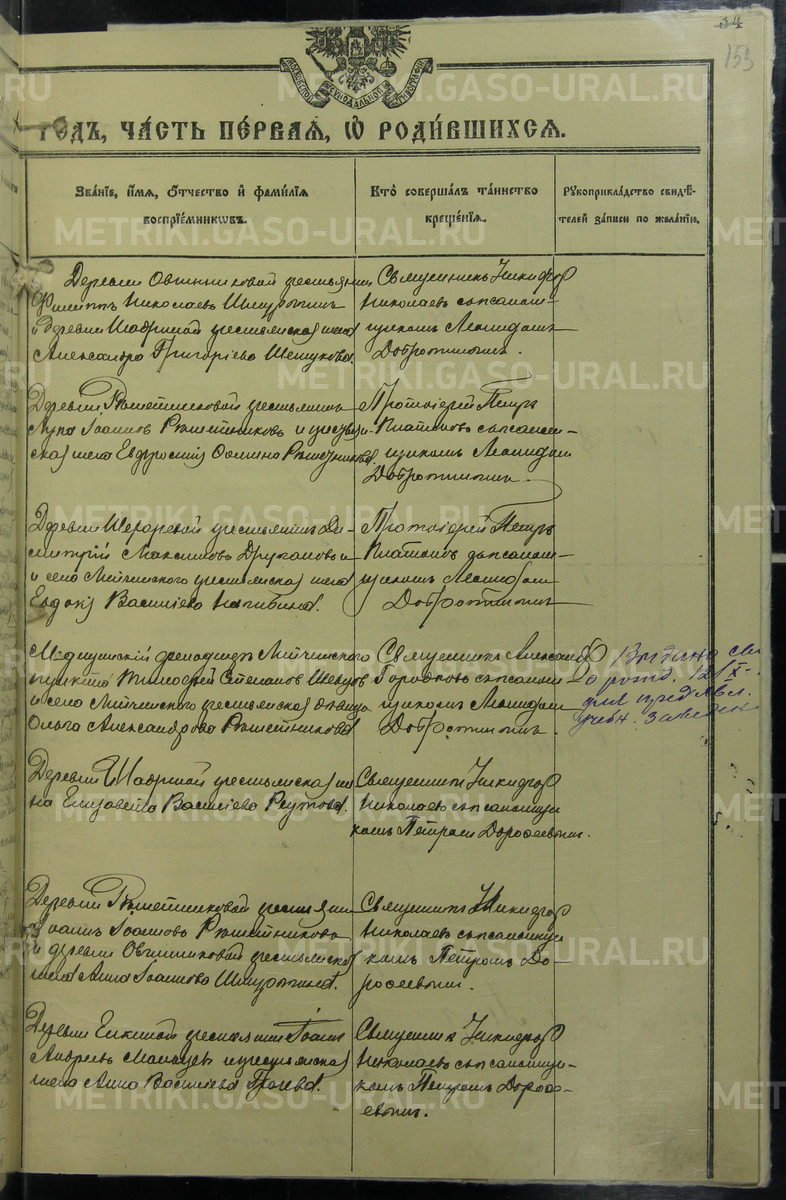 34
153
МОСКОВСКОЙ СѴНОДАЛЬНОЙ ТИПОГРАФІИ
годъ, часть первая, ѡ родившихся.
Званіе, имя, отчество и фамилія
воспріемниковъ.
Кто совершалъ таинство
крещенія.
Рукоприкладство свидѣ-
телей записи по желанію.
Деревни Овчинниковой крестьянин
Филиппъ Николаевъ
и деревни Шавриной крестьянская жена
Александра Григоріева Шешукова.
Священникъ Никифор
Николаевъ съ псалом-
щикомъ Леонидомъ
Добротинымъ.
Деревни Рѣшетниковой крестьянинъ
Лука Іоаннов Рѣшетниковъ и крестьян-
ская жена Евдросинія Рѣшетникова.
Протоіерей Петръ
Платоновъ съ псалом-
щикомъ Леонидом
Добротинымъ.
Деревни крестьянинъ Ди-
митрій Максимовъ
и села крестьянская жена
Евдокія Василіева Нагибина.
Протоіерей Петръ
Платоновъ съ псалом-
щикомъ Леонидом
Добротинымъ
Медицинскій фельдшеръ
пункта Тимофей Стефанов Шевцов
и села крестьянская дѣвица
Ольга Александрова Рѣшетникова
Священникъ Алексій
Городковъ съ псалом-
щикомъ Леонидом
Добротинымъ.
Выдано сви
о рожд. 12/X
для представл.
учебн. заведен
Деревни Шавриной крестьянская же
на Елизавета Василіева Реутова.
Священникъ Никифор
Николаевъ съ псаломщи
комъ Петромъ Дорофеевымъ.
Деревни Рѣшетниковой крестьянин
Іоаннъ Іоанновъ Рѣшетниковъ
и деревни Овчинниковой крестьянская
жена Анна Іоаннова
Священникъ Никифор
Николаевъ съ псаломщи
комъ Петромъ До-
рофеевымъ.
Деревни Елкиной крестьянин Іоанн
Андреевъ и крестьянская
жена Анна Василіева
Священник Никифор
Николаевъ съ псаломщи-
комъ Петромъ Дорофе-
евымъ.
METRIKI.GASO-URAL.RU